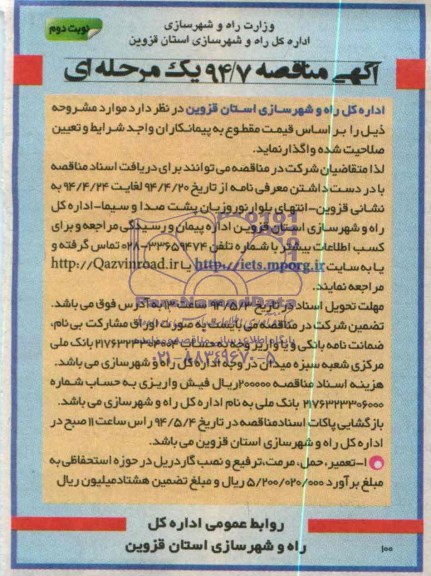 نوبت دوم
وزارت راه و شهرسازی
اداره کل راه و شهرسازی استان قزوین
آگهی مناقصه ۹۴/۷ یک مرحله ای
اداره کل راه و شهرسازی استان قزوین در نظر دارد موارد مشروحه
ذیل را بر اساس قیمت مقطوع به پیمانکاران واجد شرایط و تعیین
صلاحیت شده واگذار نماید.
لذا متقاضیان شرکت در مناقصه می توانند برای دریافت اسناد مناقصه
با در دست داشتن معرفی نامه از تاریخ ۹۴/۴/۲۰ لغایت ۹۴/۴/۲۴ به
نشانی قزوین-انتهای بلوار نوروزیان پشت صدا و سیما-اداره کل
راه و شهرسازی استان قزوین اداره پیمان و رسیدگی مراجعه و برای
کسب اطلاعات بیشتر با شماره تلفن ۳۳۶۵۹۴۷۴-۰۲۸ تماس گرفته و
یا به سایت http://iets.mporg.ir یا http://Qazvinroad.ir
مراجعه نمایند.
مهلت تحویل اسناد در تاریخ ۹۴/۵/۳ ساعت ۱۳ به آدرس فوق می باشد.
تضمین شرکت در مناقصه می بایست به صورت اوراق مشارکت بی نام،
ضمانت نامه بانکی و یا واریز وجه به حساب بانک ملی
مرکزی شعبه سبزه میدان در وجه اداره کل راه و شهرسازی می باشد.
۰۲۱-۸۸۳۴۹۶۷۰-۵
هزینه اسناد مناقصه ۲۰۰۰۰۰ ریال فیش واریزی به حساب شماره
۲۱۷۶۳۲۳۳۰۶۰۰۰ بانک ملی به نام اداره کل راه و شهرسازی می باشد.
بازگشایی پاکات اسناد مناقصه در تاریخ ۹۴/۵/۴ راس ساعت ۱۱ صبح در
اداره کل راه و شهرسازی استان قزوین می باشد.
۱-تعمیر، حمل، مرمت، ترفیع و نصب گاردریل در حوزه استحفاظی به
مبلغ برآورد ۵/۲۰۰/۰۲۰/۰۰۰ ریال و مبلغ تضمین هشتاد میلیون ریال
روابط عمومی اداره کل
راه و شهرسازی استان قزوین
۱۰۰